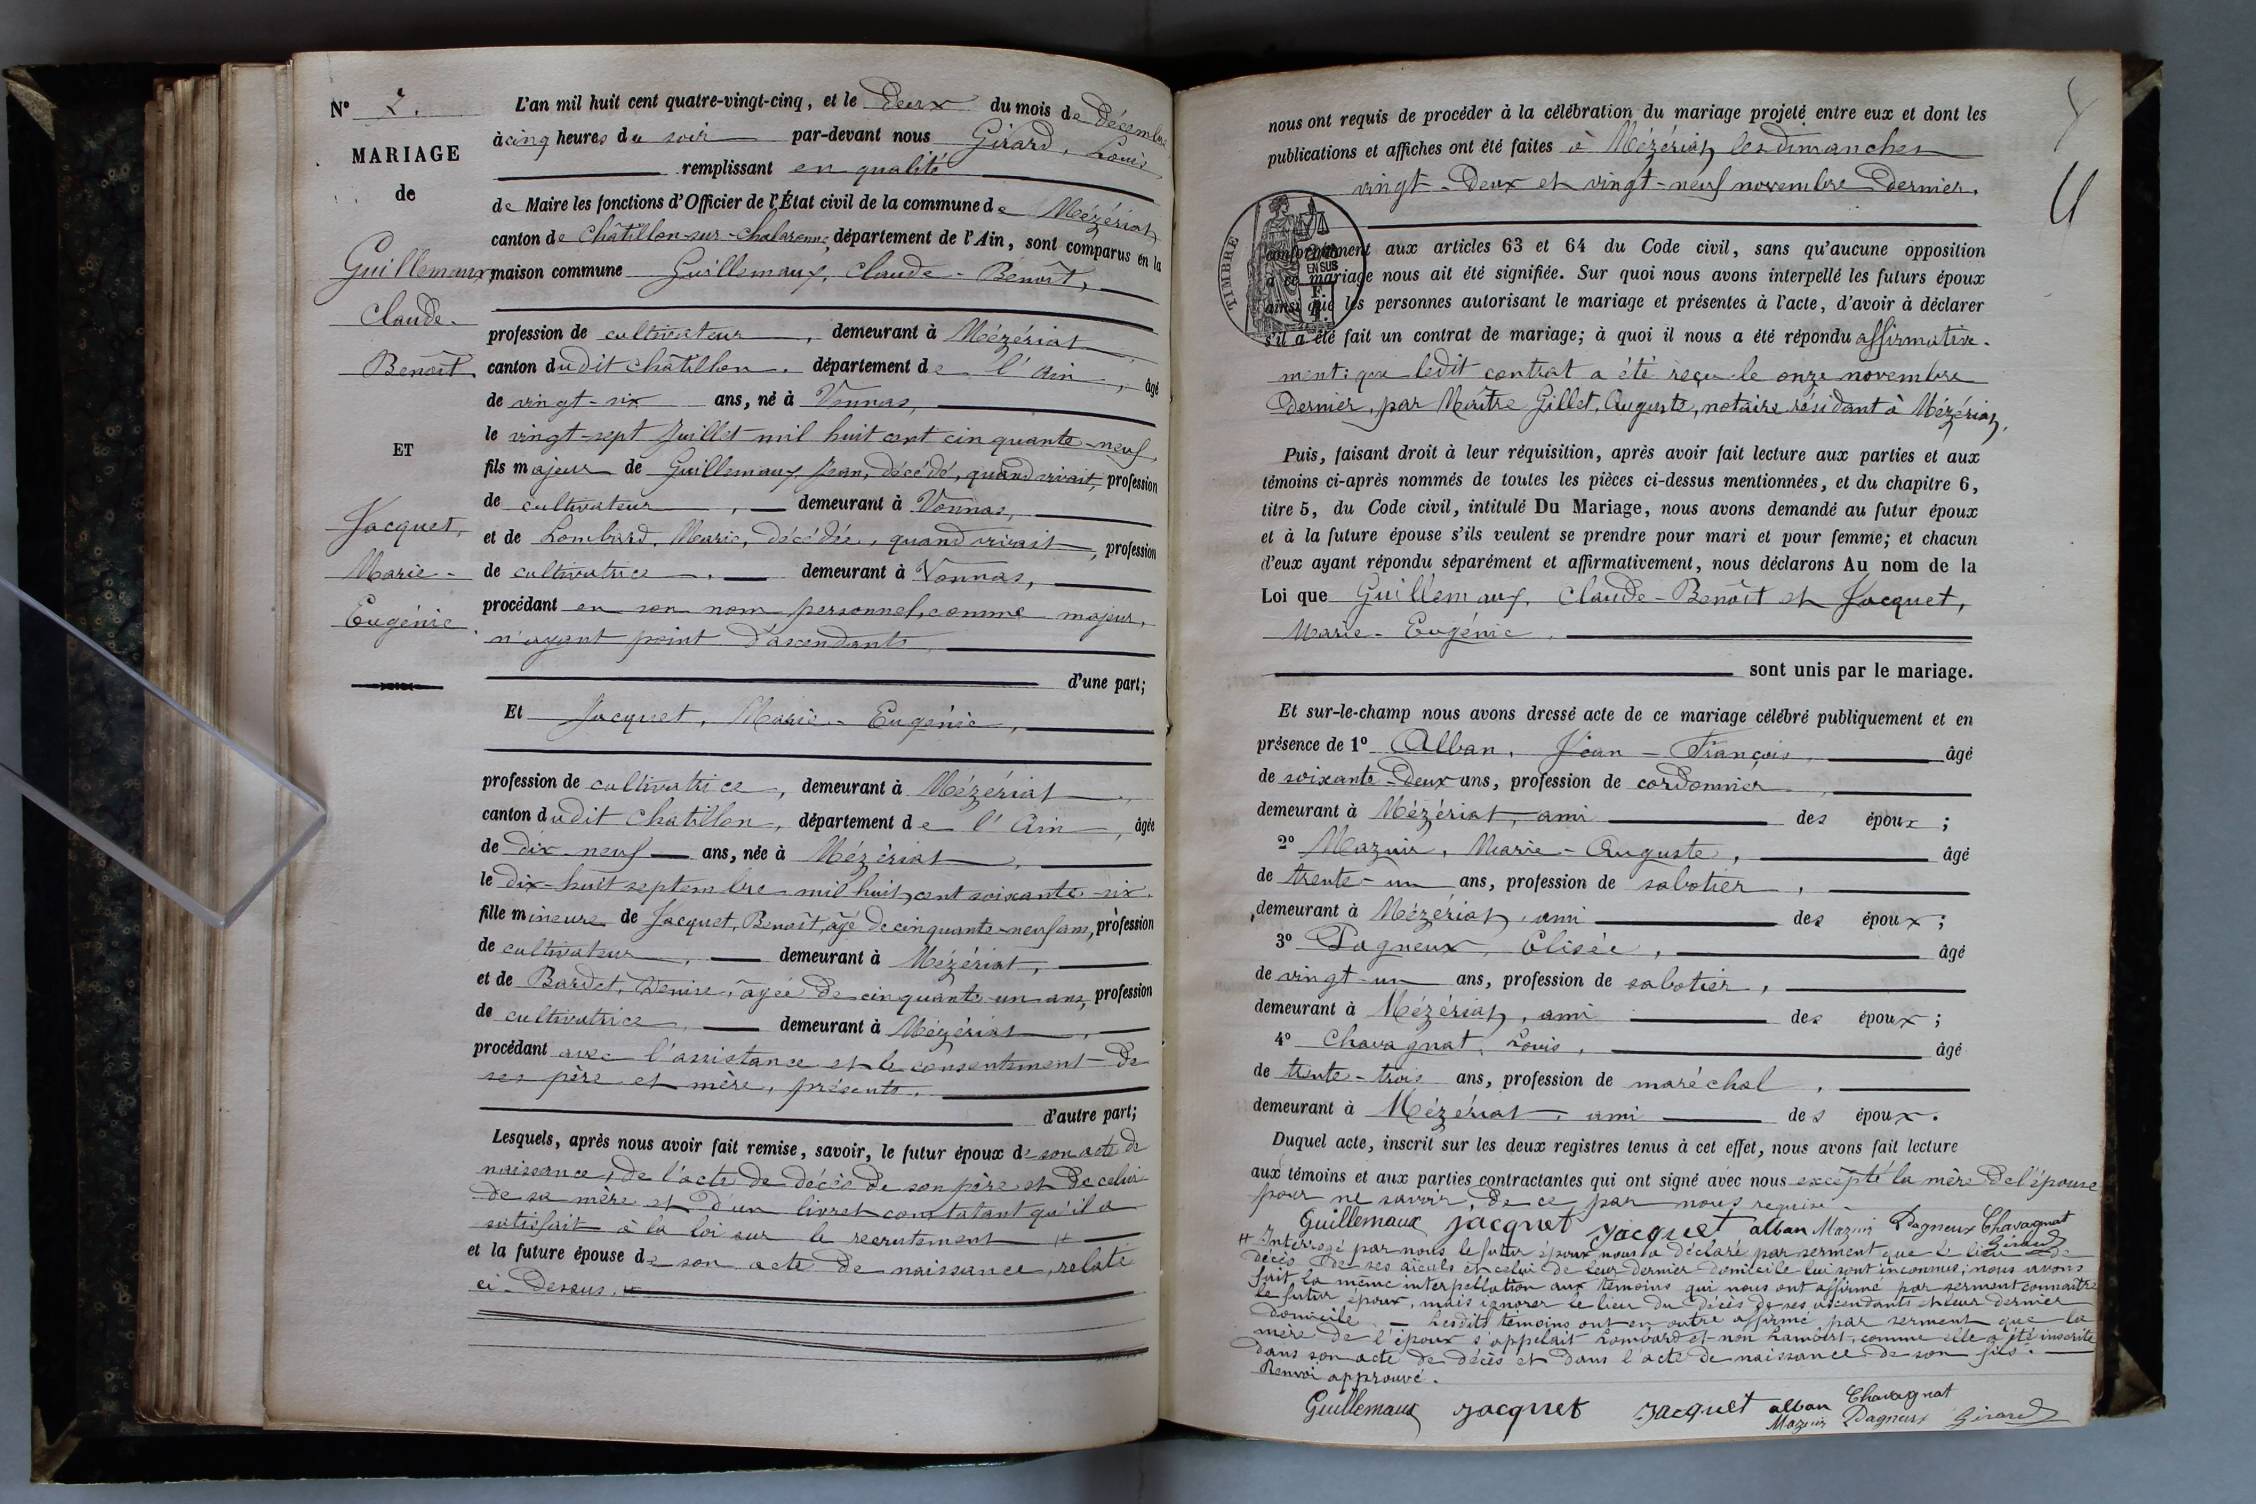 N° 7.
MARIAGE
de
Guillemaux,
Claude-
Benoît.
ET
Jacquet,
Marie-
Eugénie.
L'an mil huit cent quatre-vingt-cinq, et le deux du mois de décembre
à cinq heures du soir par-devant nous Girard, Louis,
remplissant en qualité
de Maire les fonctions d'Officier de l'État civil de la commune de Mézériat
canton de Châtillon-sur-Chalaronne, département de l'Ain, sont comparus en la
maison commune Guillemaux, Claude-Benoît,
profession de cultivateur, demeurant à Mézériat,
canton dudit Châtillon, département de l'Ain, âgé
de vingt-six ans, né à Vonnas,
le vingt-sept juillet mil huit cent cinquante-neuf,
fils majeur de Guillemaux Jean, décédé, quand vivait, profession
de cultivateur, demeurant à Vonnas,
et de Lombard, Marie, décédée, quand vivait, profession
de cultivatrice, demeurant à Vonnas,
procédant en son nom personnel, comme majeur,
n'ayant point d'ascendants,
d'une part;
Et Jacquet, Marie-Eugénie,
profession de cultivatrice, demeurant à Mézériat,
canton dudit Châtillon, département de l'Ain, âgée
de dix-neuf ans, née à Mézériat,
le dix-huit septembre mil huit cent soixante-six,
fille mineure de Jacquet, Benoît, âgé de cinquante-neuf ans, profession
de cultivateur, demeurant à Mézériat,
et de Bardet, Denise, âgée de cinquante-un ans, profession
de cultivatrice, demeurant à Mézériat,
procédant avec l'assistance et le consentement de
ses père et mère, présents,
d'autre part;
Lesquels, après nous avoir fait remise, savoir, le futur époux de son acte de
naissance, de l'acte de décès de son père et de celui
de sa mère et d'un livret constatant qu'il a
satisfait à la loi sur le recrutement #
et la future épouse de son acte de naissance, relaté
ci-dessus.
nous ont requis de procéder à la célébration du mariage projeté entre eux et dont les
publications et affiches ont été faites à Mézériat, les dimanches
vingt-deux et vingt-neuf novembre dernier.
TIMBRE
EN SUS
conformément aux articles 63 et 64 du Code civil, sans qu'aucune opposition
à ce mariage nous ait été signifiée. Sur quoi nous avons interpellé les futurs époux
ainsi que les personnes autorisant le mariage et présentes à l'acte, d'avoir à déclarer
s'il a été fait un contrat de mariage; à quoi il nous a été répondu affirmative-
ment: que ledit contrat a été reçu le onze novembre
dernier, par Maître Gillet, Auguste, notaire résidant à Mézériat,
Puis, faisant droit à leur réquisition, après avoir fait lecture aux parties et aux
témoins ci-après nommés de toutes les pièces ci-dessus mentionnées, et du chapitre 6,
titre 5, du Code civil, intitulé Du Mariage, nous avons demandé au futur époux
et à la future épouse s'ils veulent se prendre pour mari et pour femme; et chacun
d'eux ayant répondu séparément et affirmativement, nous déclarons Au nom de la
Loi que Guillemaux, Claude-Benoît et Jacquet,
Marie-Eugénie,
sont unis par le mariage.
Et sur-le-champ nous avons dressé acte de ce mariage célébré publiquement et en
présence de 1° Alban, Jean-François, âgé
de soixante-deux ans, profession de cordonnier,
demeurant à Mézériat, ami des époux;
2° Mazuir, Marie-Auguste, âgé
de trente-un ans, profession de sabotier,
demeurant à Mézériat, ami des époux;
3° Dagneux, Elisée, âgé
de vingt-un ans, profession de sabotier,
demeurant à Mézériat, ami des époux;
4° Chavagnat, Louis, âgé
de trente-trois ans, profession de maréchal,
demeurant à Mézériat, ami des époux.
Duquel acte, inscrit sur les deux registres tenus à cet effet, nous avons fait lecture
aux témoins et aux parties contractantes qui ont signé avec nous excepté la mère de l'épouse
pour ne savoir, de ce par nous requise.
Guillemaux jacquet jacquet alban Mazuir Dagneux Chavagnat
Girard
# Interrogé par nous le futur époux nous a déclaré par serment que le lieu de
décès de ses aïeuls et celui de leur dernier domicile lui sont inconnus; nous avons
fait la même interpellation aux témoins qui nous ont affirmé par serment connaître
le futur époux, mais ignorer le lieu du décès de ses ascendants et leur dernier
domicile. - Lesdits témoins ont en outre affirmé par serment que la
mère de l'époux s'appelait Lombard et non Lambert, comme elle a été inscrite
dans son acte de décès et dans l'acte de naissance de son fils.
Renvoi approuvé.
Guillemaux jacquet jacquet alban Chavagnat
Mazuir Dagneux Girard